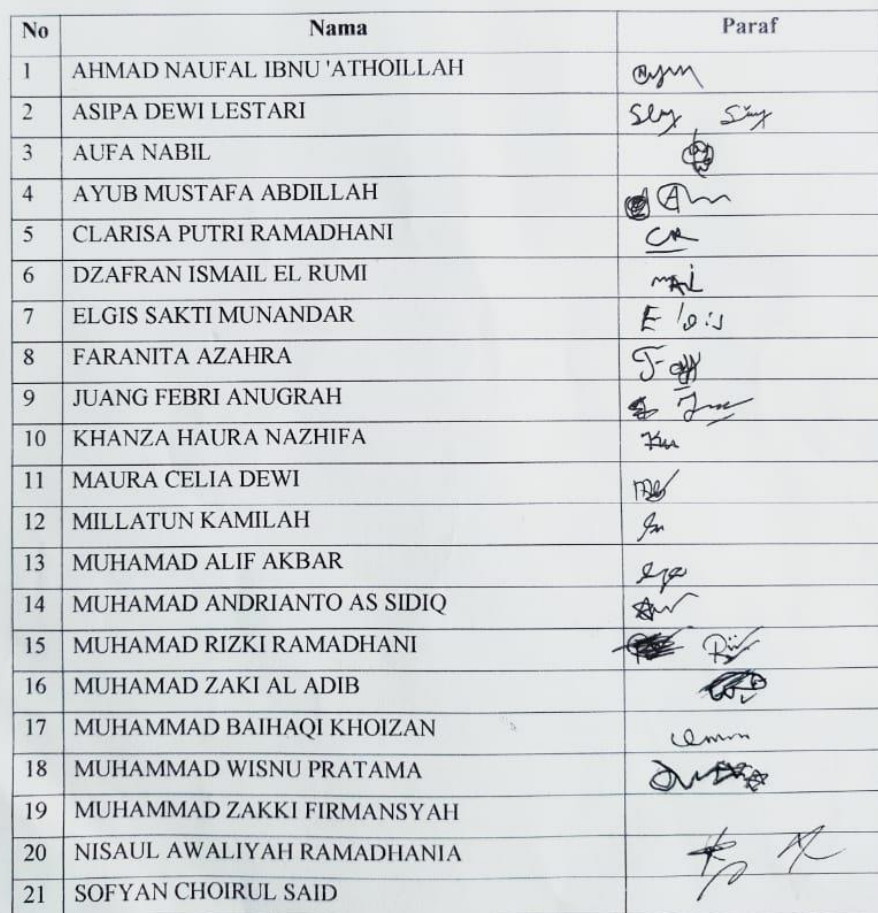 No Nama Paraf
1 AHMAD NAUFAL IBNU 'ATHOILLAH
2 ASIPA DEWI LESTARI
3 AUFA NABIL
4 AYUB MUSTAFA ABDILLAH
5 CLARISA PUTRI RAMADHANI CR
6 DZAFRAN ISMAIL EL RUMI MAIL
7 ELGIS SAKTI MUNANDAR
8 FARANITA AZAHRA
9 JUANG FEBRI ANUGRAH
10 KHANZA HAURA NAZHIFA
11 MAURA CELIA DEWI
12 MILLATUN KAMILAH
13 MUHAMAD ALIF AKBAR
14 MUHAMAD ANDRIANTO AS SIDIQ
15 MUHAMAD RIZKI RAMADHANI
16 MUHAMAD ZAKI AL ADIB
17 MUHAMMAD BAIHAQI KHOIZAN
18 MUHAMMAD WISNU PRATAMA
19 MUHAMMAD ZAKKI FIRMANSYAH
20 NISAUL AWALIYAH RAMADHANIA
21 SOFYAN CHOIRUL SAID